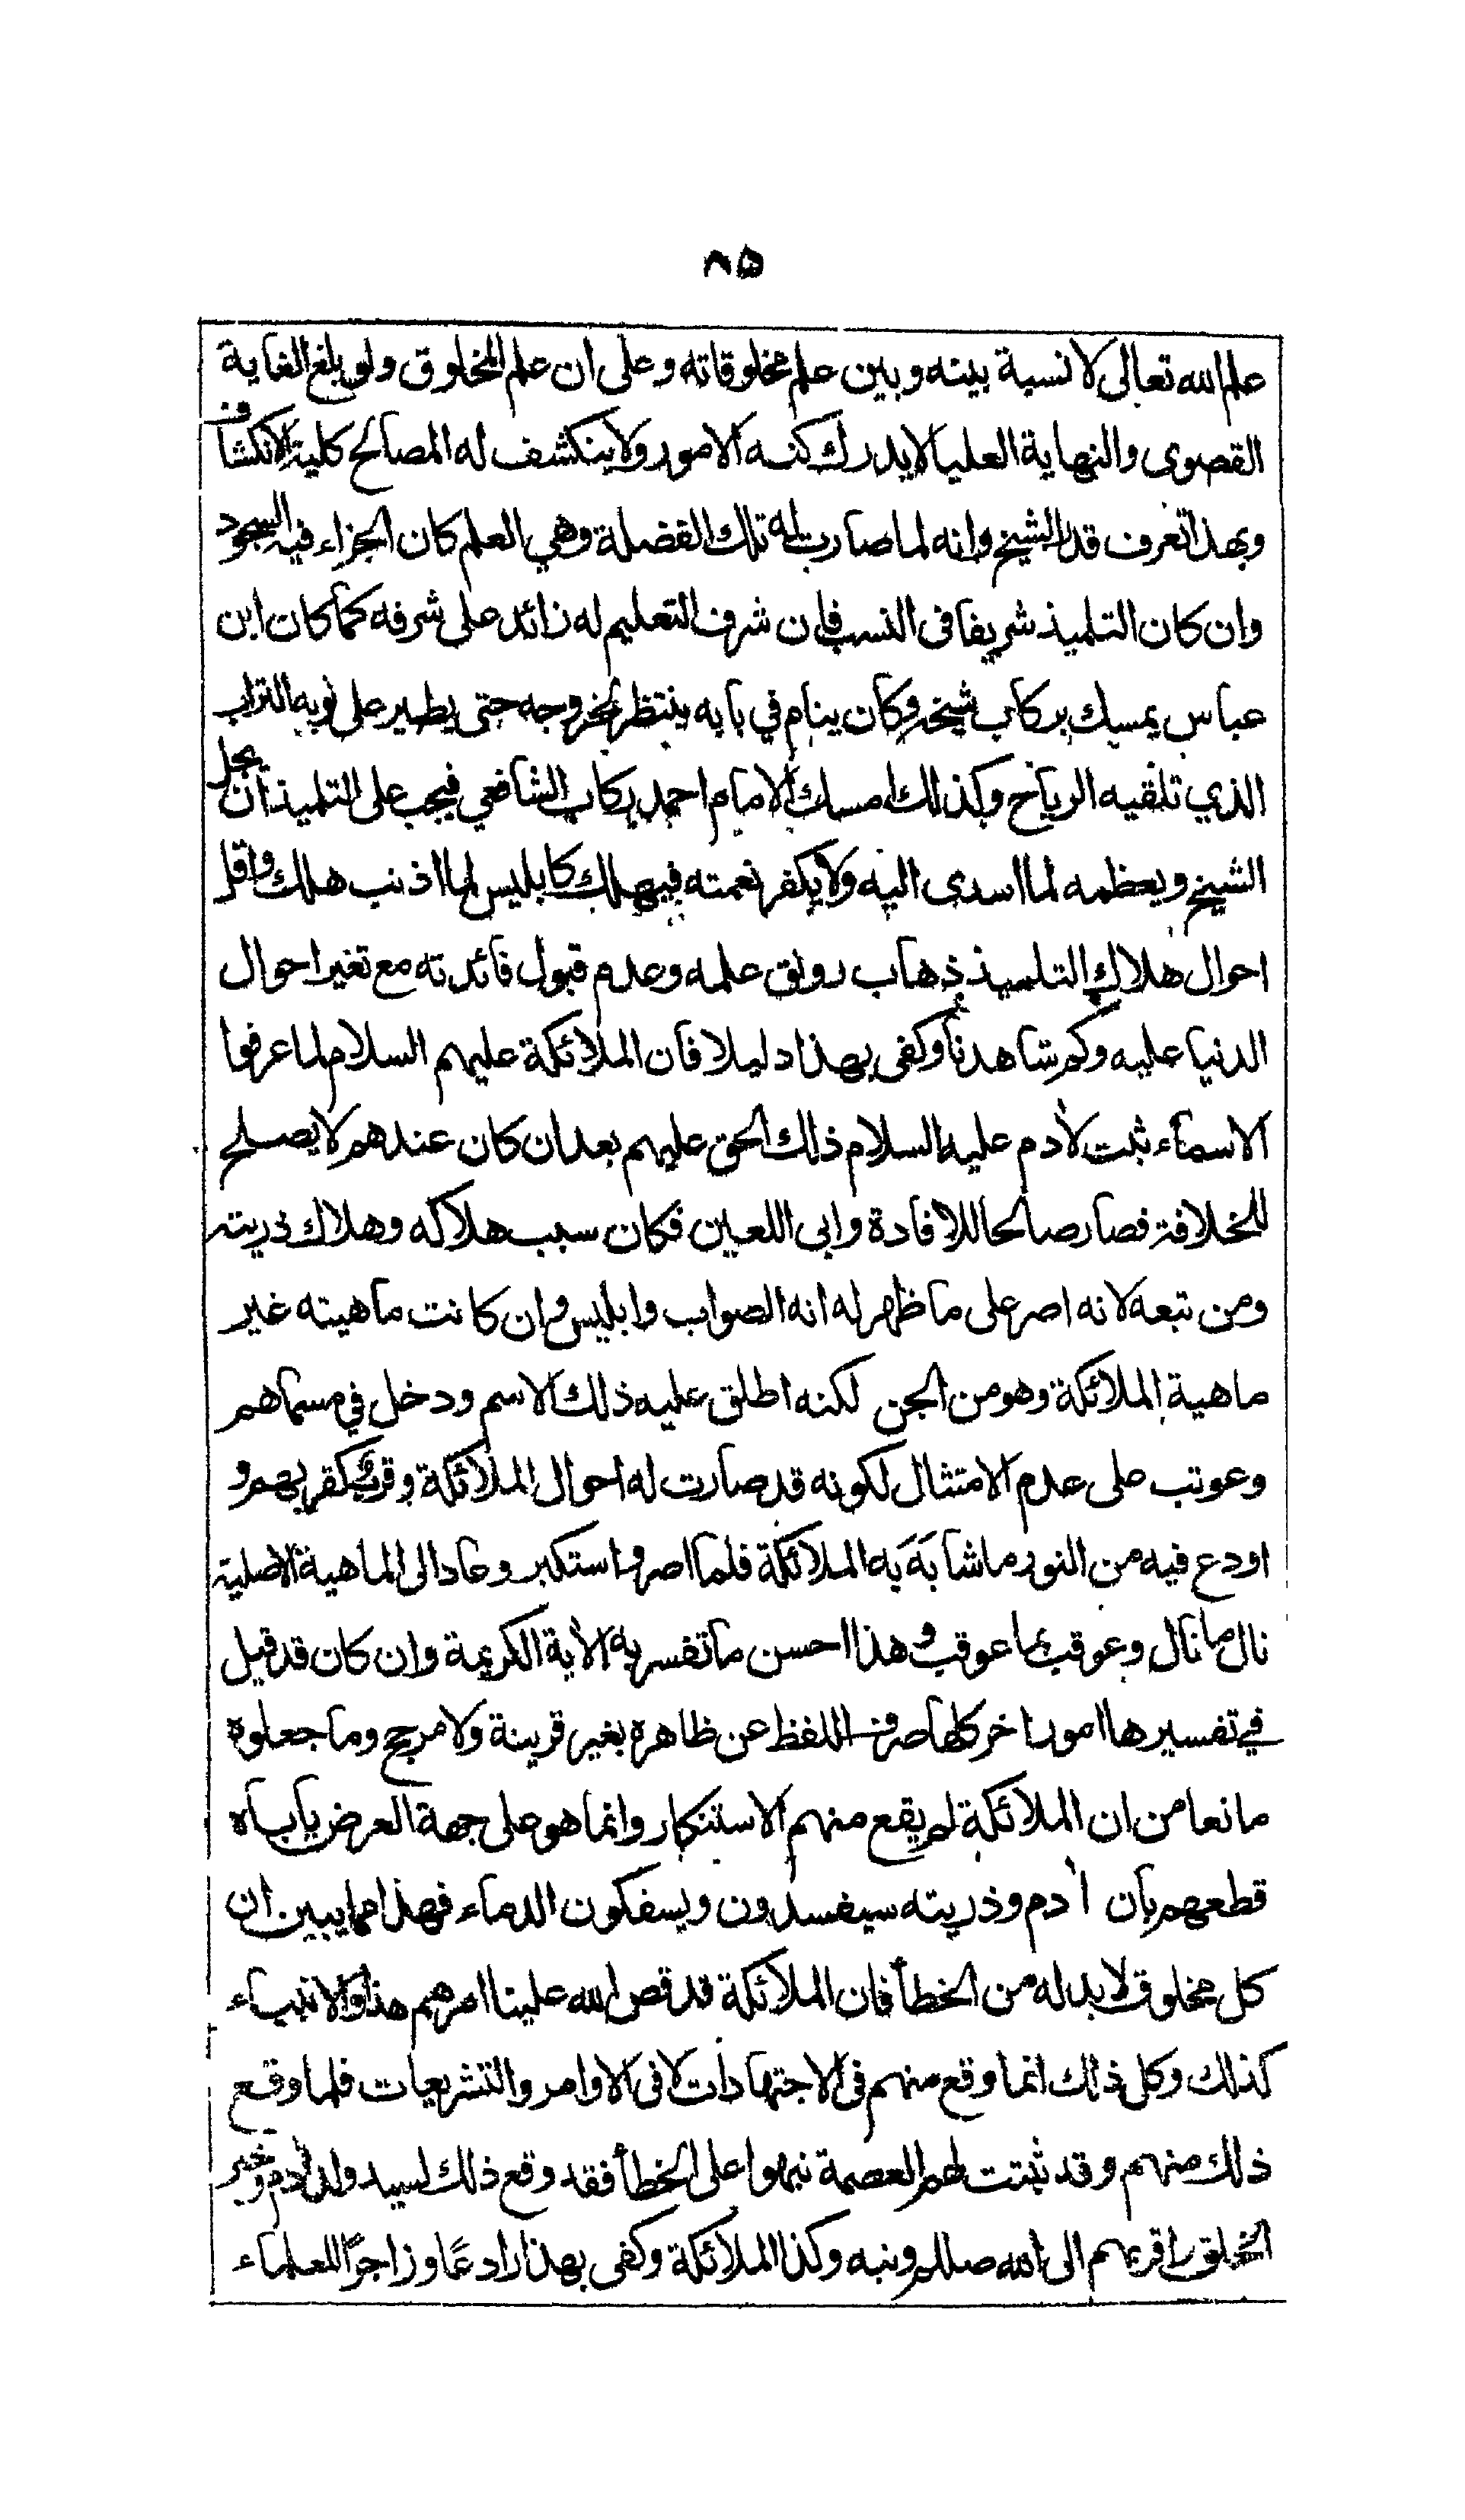 ٨٥
علم الله تعالى لا نسبة بينه وبين علم مخلوقاته وعلى ان علم المخلوق ولو بلغ الغاية
القصوى والنهاية العليا لا يدرك كنه الامور ولا ينكشف له المصالح كلية الانكشاف
وبهذا تعرف قدر الشيخ وانه لما صارت له تلك الفضلة وهي العلم كان الجزاء فيه السجود
وان كان التلميذ شريفا فى النسب فان شرف التعليم له زائد على شرفه كما كان ابن
عباس يمسك بركاب شيخه وكان ينام في بابه ينتظر لخروجه حتى يطير على ثوبه التراب
الذي تلقيه الرياح وكذلك امسك الامام احمد بركاب الشافعي فيجب على التلميذ ان يجل
الشيخ ويعظمه لما اسدى اليه ولا يكفر نعمته فيهلك كابليس لما اذنب هلك واقل
احوال هلاك التلميذ ذهاب رونق علمه وعدم قبول فائدته مع تغير احوال
الدنيا عليه وكم شاهدنا وكفى بهذا دليلا فان الملائكة عليهم السلام لما عرفوا
الاسماء ثبت لأدم عليه السلام ذلك الحق عليهم بعد ان كان عندهم لا يصلح
للخلافة فصار صالحا للافادة وابى اللعين فكان سبب هلاكه وهلاك ذريته
ومن تبعه لانه اصر على ما ظهر له انه الصواب وابليس وان كانت ماهيته غير
ماهية الملائكة وهو من الجن لكنه اطلق عليه ذلك الاسم ودخل في مسماهم
وعوتب على عدم الامتثال لكونه قد صارت له احوال الملائكة وقربه كقربهم و
اودع فيه من النور ما شابَهَ به الملائكة فلما اصر واستكبر وعاد الى الماهية الاصلية
نال ما نال وعوقب بما عوقب وهذا احسن ما تفسر به الأية الكريمة وان كان قد قيل
في تفسيرها امور اخر كلها صرف اللفظ عن ظاهره بغير قرينة ولا مرجح وما جعلوه
مانعا من ان الملائكة لم يقع منهم الاستنكار وانما هو على جهة العرض ياباه
قطعهم بان أدم وذريته سيفسدون ويسفكون الدماء فهذا مما يبين ان
كل مخلوق لا بد له من الخطأ فان الملائكة قد قص الله علينا امرهم هذا والانبياء
كذلك وكل ذلك انما وقع منهم فى الاجتهادات لا فى الاوامر والتشريعات فلما وقع
ذلك منهم وقد ثبتت لهم العصمة نبهوا على الخطأ فقد وقع ذلك لسيد ولد أدم وخير
الخلق واقربهم الى الله صللم ونبه وكذا الملائكة وكفى بهذا رادعًا وزاجرًا للعلماء